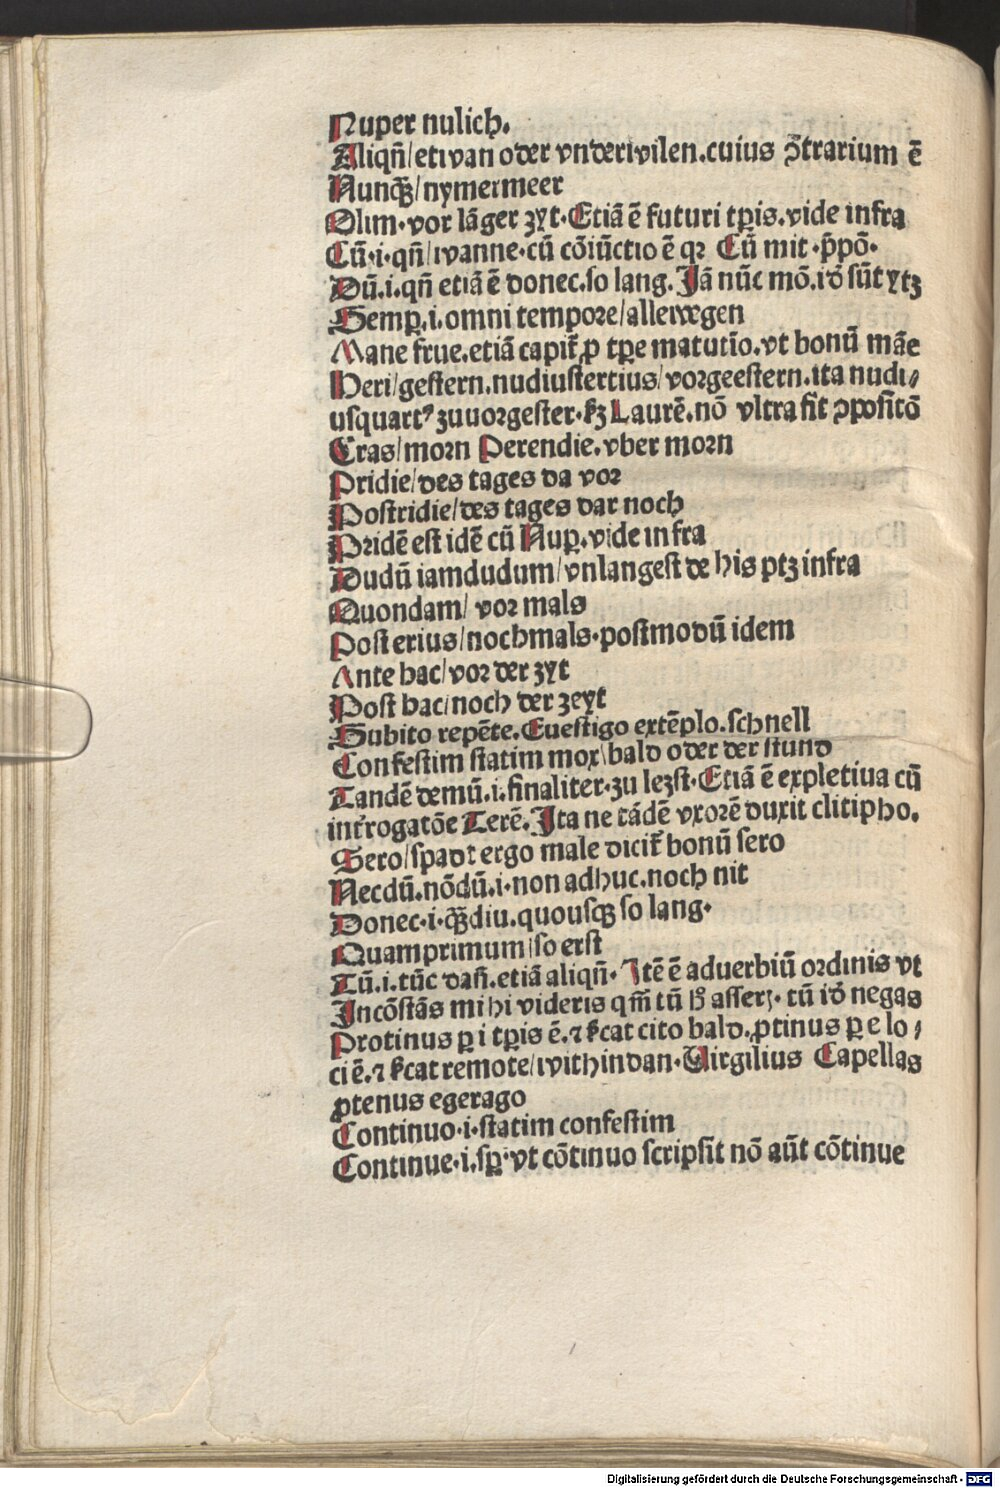 Nuper nulich.
Aliqñ/etwan oder vnderwilen.cuius ꝯ̃trarium ẽ
Nunqȝ̃/nymermeer
Olim·vor lãger zyt·Etiã ẽ futuri tp̃is.vide infra
Cũ·i·qñ/wanne·cũ cõiũctio ẽ qꝛ Cũ mit·p̃põ·
Dũ.i.qñ etiã ẽ donec.so lang. Jã nũc mõ.iõ sũt ytȝ
Semꝑ.i.omni tempore/allewegen
Mane frue.etiã capit᷑ ꝓ tp̃e matutĩo.vt bonũ mãe
Heri/gestern.nudiustertius/vorgeestern.ita nudi⸗
usquartꝰ zuuorgester·sȝ Laurẽ.nõ vltra fit ꝯpositõ
Cras/morn Perendie.vber morn
Pridie/des tages da vor
Postridie/des tages dar noch
Pridẽ est idẽ cũ Nuꝑ.vide infra
Dudũ iamdudum/vnlangest de his ptȝ infra
Quondam/ vor mals
Posterius/nochmals·postmodũ idem
Ante hac/vor der zyt
Post hac/noch der zeyt
Subito repẽte.Euestigo extẽplo.schnell
Confestim statim mox/bald oder der stund
Tandẽ demũ.i.finaliter·zu lezst·Etiã ẽ expletiua cũ
int᷑rogatõe Terẽ.Jta ne tãdẽ vxorẽ duxit clitipho.
Sero/spadt ergo male dicit᷑ bonũ sero
Necdũ.nõdũ.i·non adhuc.noch nit
Donec·i·qȝ̃diu.quousqȝ so lang·
Quamprimum/so erst
Tũ.i.tũc dañ.etiã aliqñ·Jtẽ ẽ aduerbiũ ordinis vt
Jncõstãs mihi videris qm̃ tũ hͦ asseris·tũ iõ negas
Protinus ꝑ i tp̃is ẽ.⁊ sͥcat cito bald.ꝓtinus ꝑ e lo⸗
ci ẽ.⁊ sͥcat remote/withindan·Virgilius Capellas
ꝓtenus eger ago
Continuo·i·statim confestim
Continue·i.sꝑ·vt cõtinuo scripsit nõ aũt cõtinue
Digitalisierung gefördert durch die Deutsche Forschungsgemeinschaft - DFG